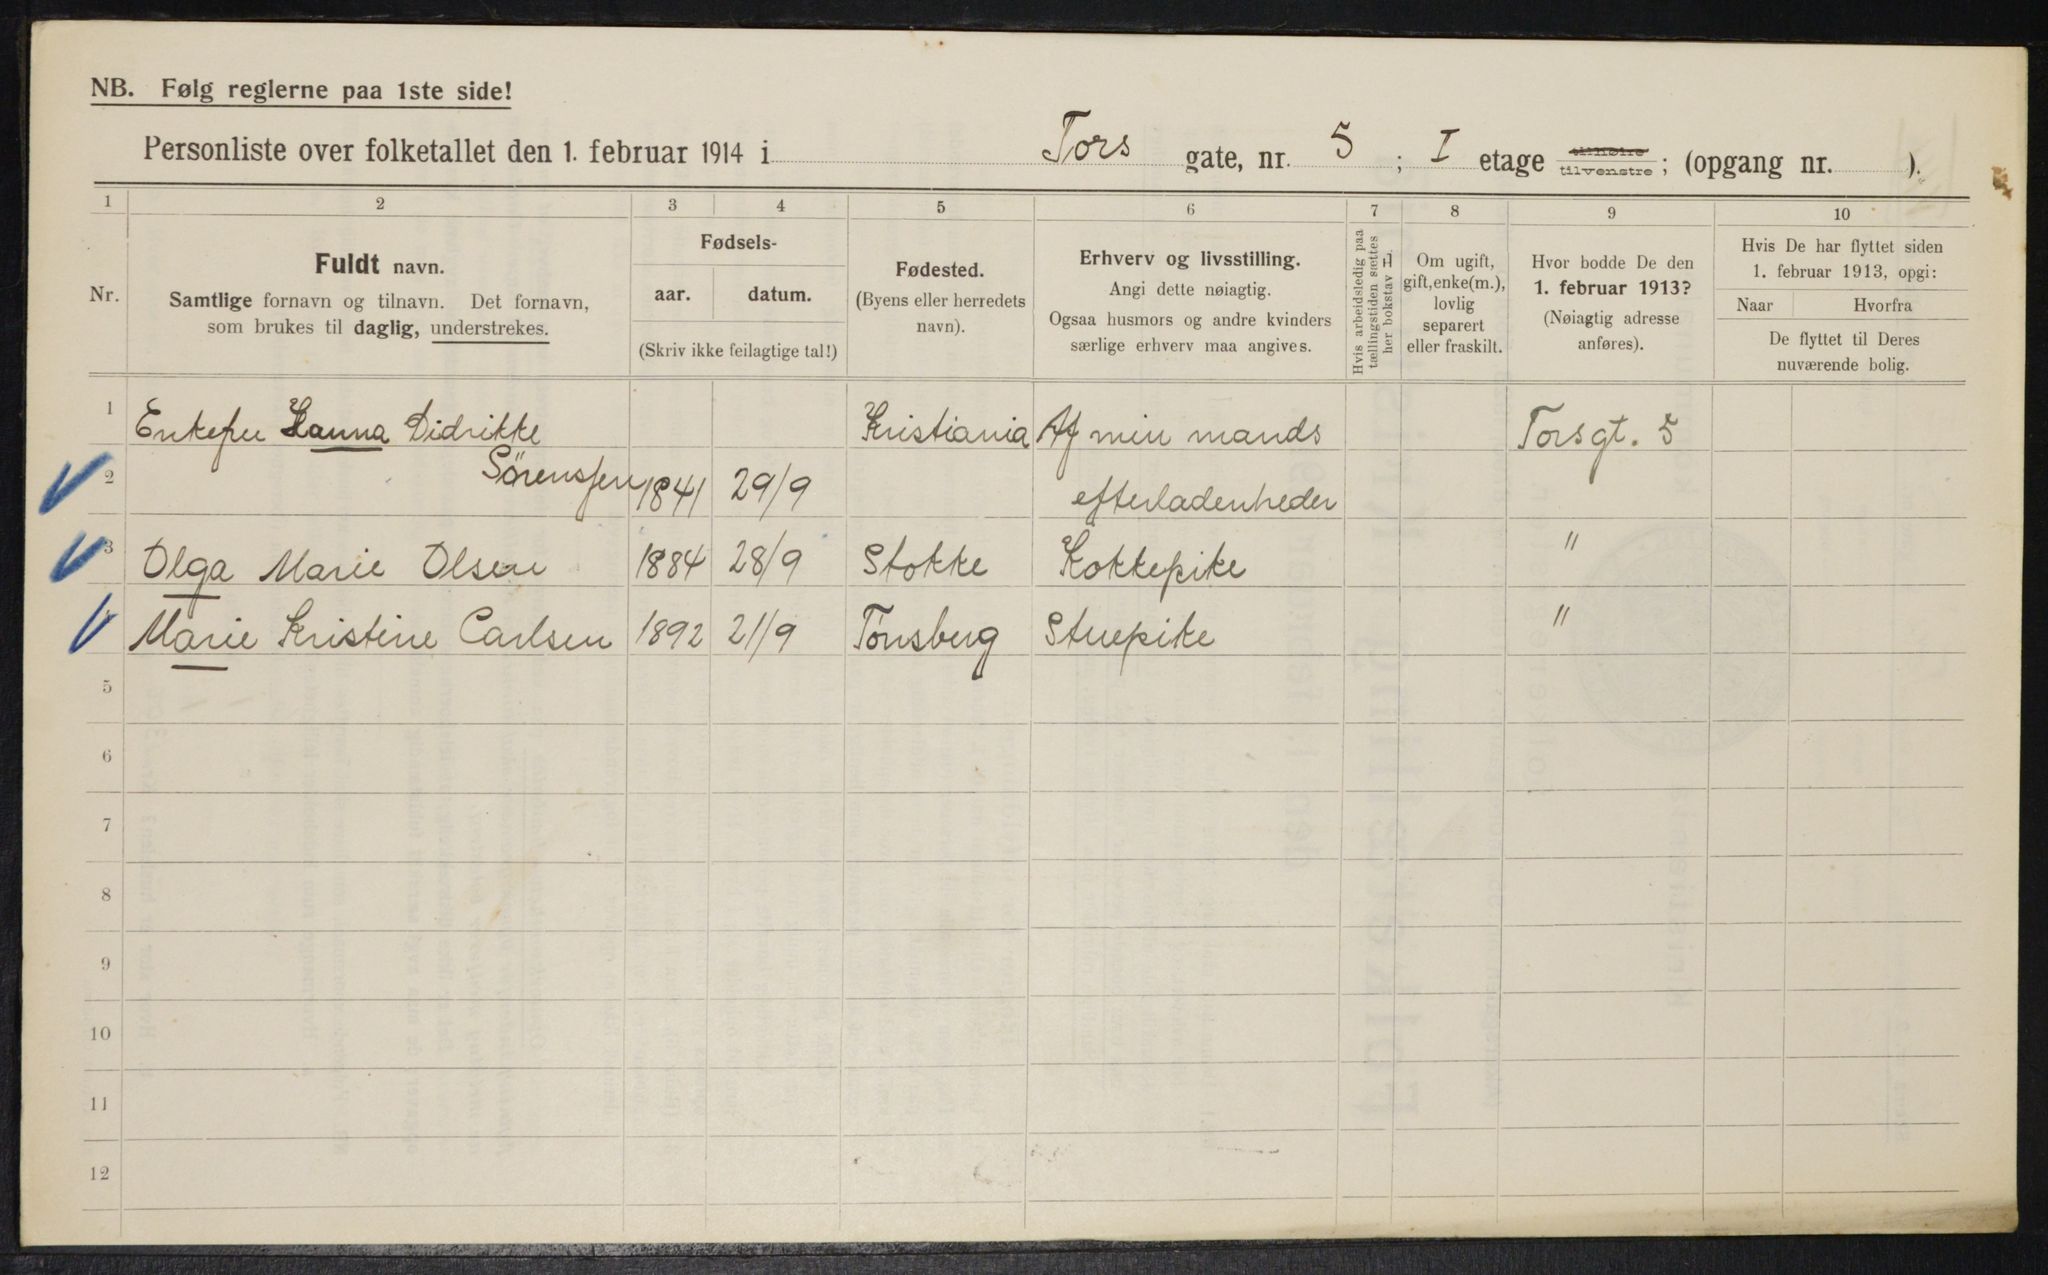 NB. Følg reglerne paa 1ste side!
Personliste over folketallet den 1. februar 1914 i Tors gate, nr. 5 ; I etage tilhøire tilvenstre ; (opgang nr. ).
1 2 3 4 5 6 7 8 9 10
Nr.
Fuldt navn.
Samtlige fornavn og tilnavn. Det fornavn,
som brukes til daglig, understrekes.
Fødsels-
aar. datum.
(Skriv ikke feilagtige tal!)
Fødested.
(Byens eller herredets
navn).
Erhverv og livsstilling.
Angi dette nøiagtig.
Ogsaa husmors og andre kvinders
særlige erhverv maa angives.
Hvis arbeidsledig paa
tællingstiden sættes
her bokstav l.
Om ugift,
gift, enke(m.),
lovlig
separert
eller fraskilt.
Hvor bodde De den
1. februar 1913?
(Nøiagtig adresse
anføres).
Hvis De har flyttet siden
1. februar 1913, opgi:
Naar Hvorfra
De flyttet til Deres
nuværende bolig.
1 Enkefru Hanna Didrikke Kristiania Af min mands Torsgt. 5
2 Sörenssen 1841 29/9 efterladenheder
3 Olga Marie Olsen 1884 28/9 Stokke Kokkepike "
Marie Kristine Carlsen 1892 21/9 Tønsberg Stuepike "
5
6
7
8
9
10
11
12